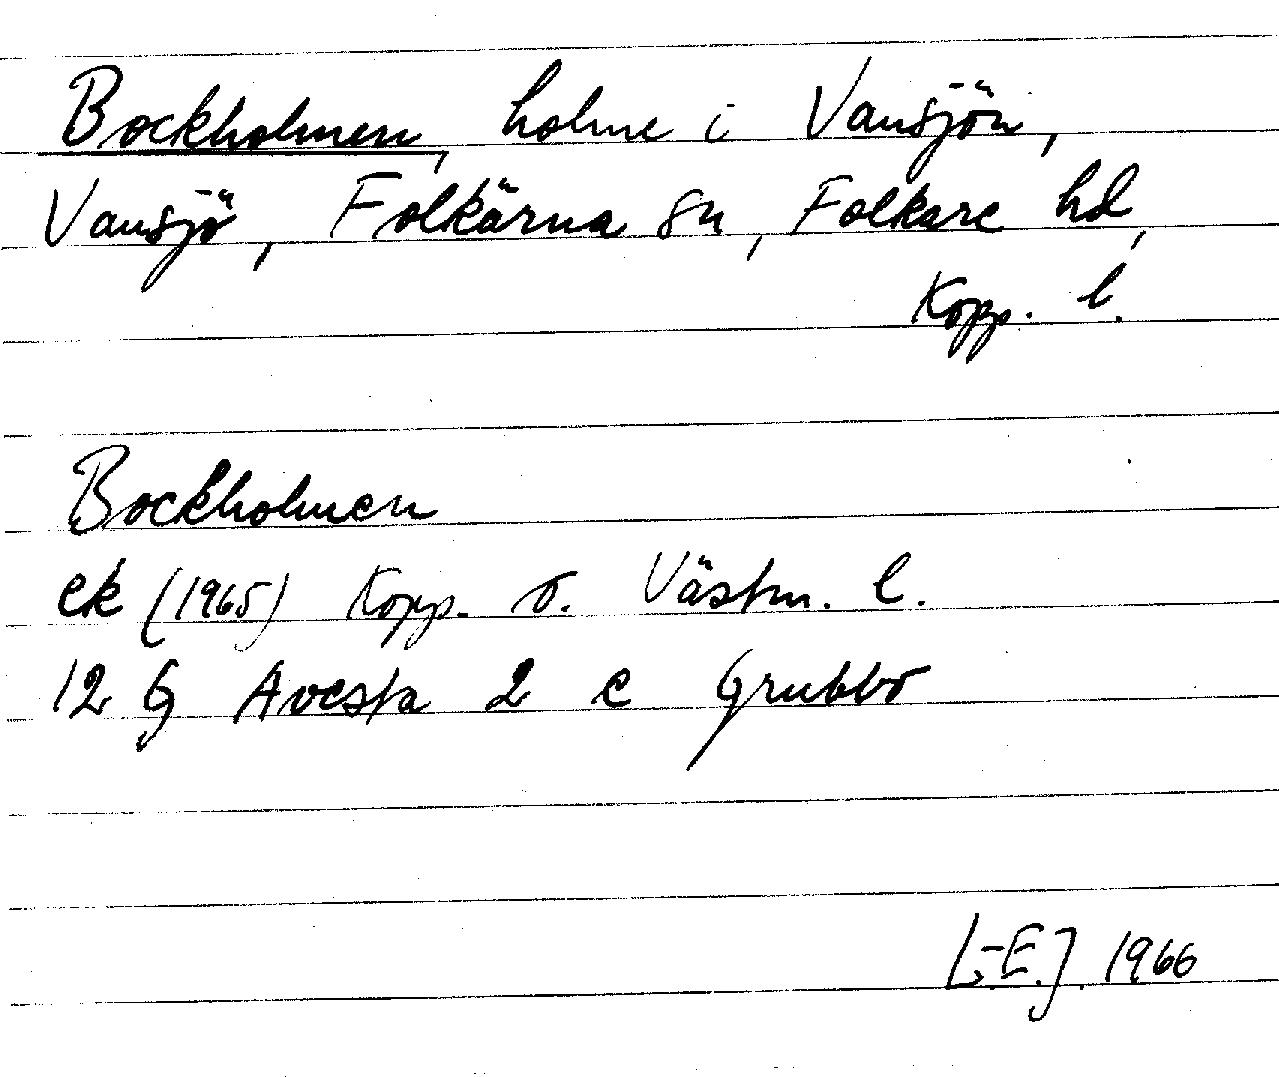 Bockholmen, holme i Vansjön,
Vansjö, Folkärna sn, Folkare hd,
Kopp. l.
Bockholmen
ek (1965) Kopp. o. Västm. l.
12 G Avesta 2 c Grubbo
L.-E. J. 1966